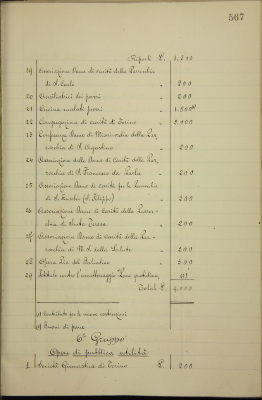 567
Riporti L. 1,200
19 Associazione Dame di carità della Parrocchia
di S. Carlo " 200
20 Ausiliatrici dei poveri " 200
21 Cucina malati poveri " 1.500
22 Congregazione di carità di Torino " 2.000
23 Conferenza Dame di Misericordia della Par
rocchia di S. Agostino " 200
24 Associazione delle Dame di Carità della Par
rocchia di S. Francesco da Paola " 200
25 Associazione Dame di carità per la Parrocchia
di S. Eusebio (S. Filippo) " 200
26 Associazione Dame di Carità della Parroc
chia di Santa Teresa " 200
27 Associazione Dame di carità della Par
rocchia di M. V. della Salute " 200
28 Opera Pia del Baliatico " 500
29 Istituto contro l'accattonaggio "Pane quotidiano"
Totale L. 9,000
a) Contributo per le nuove costruzioni
b) Buoni di pane
6° Gruppo
Opere di pubblica utilità
1 Società Ginnastica di Torino L. 200